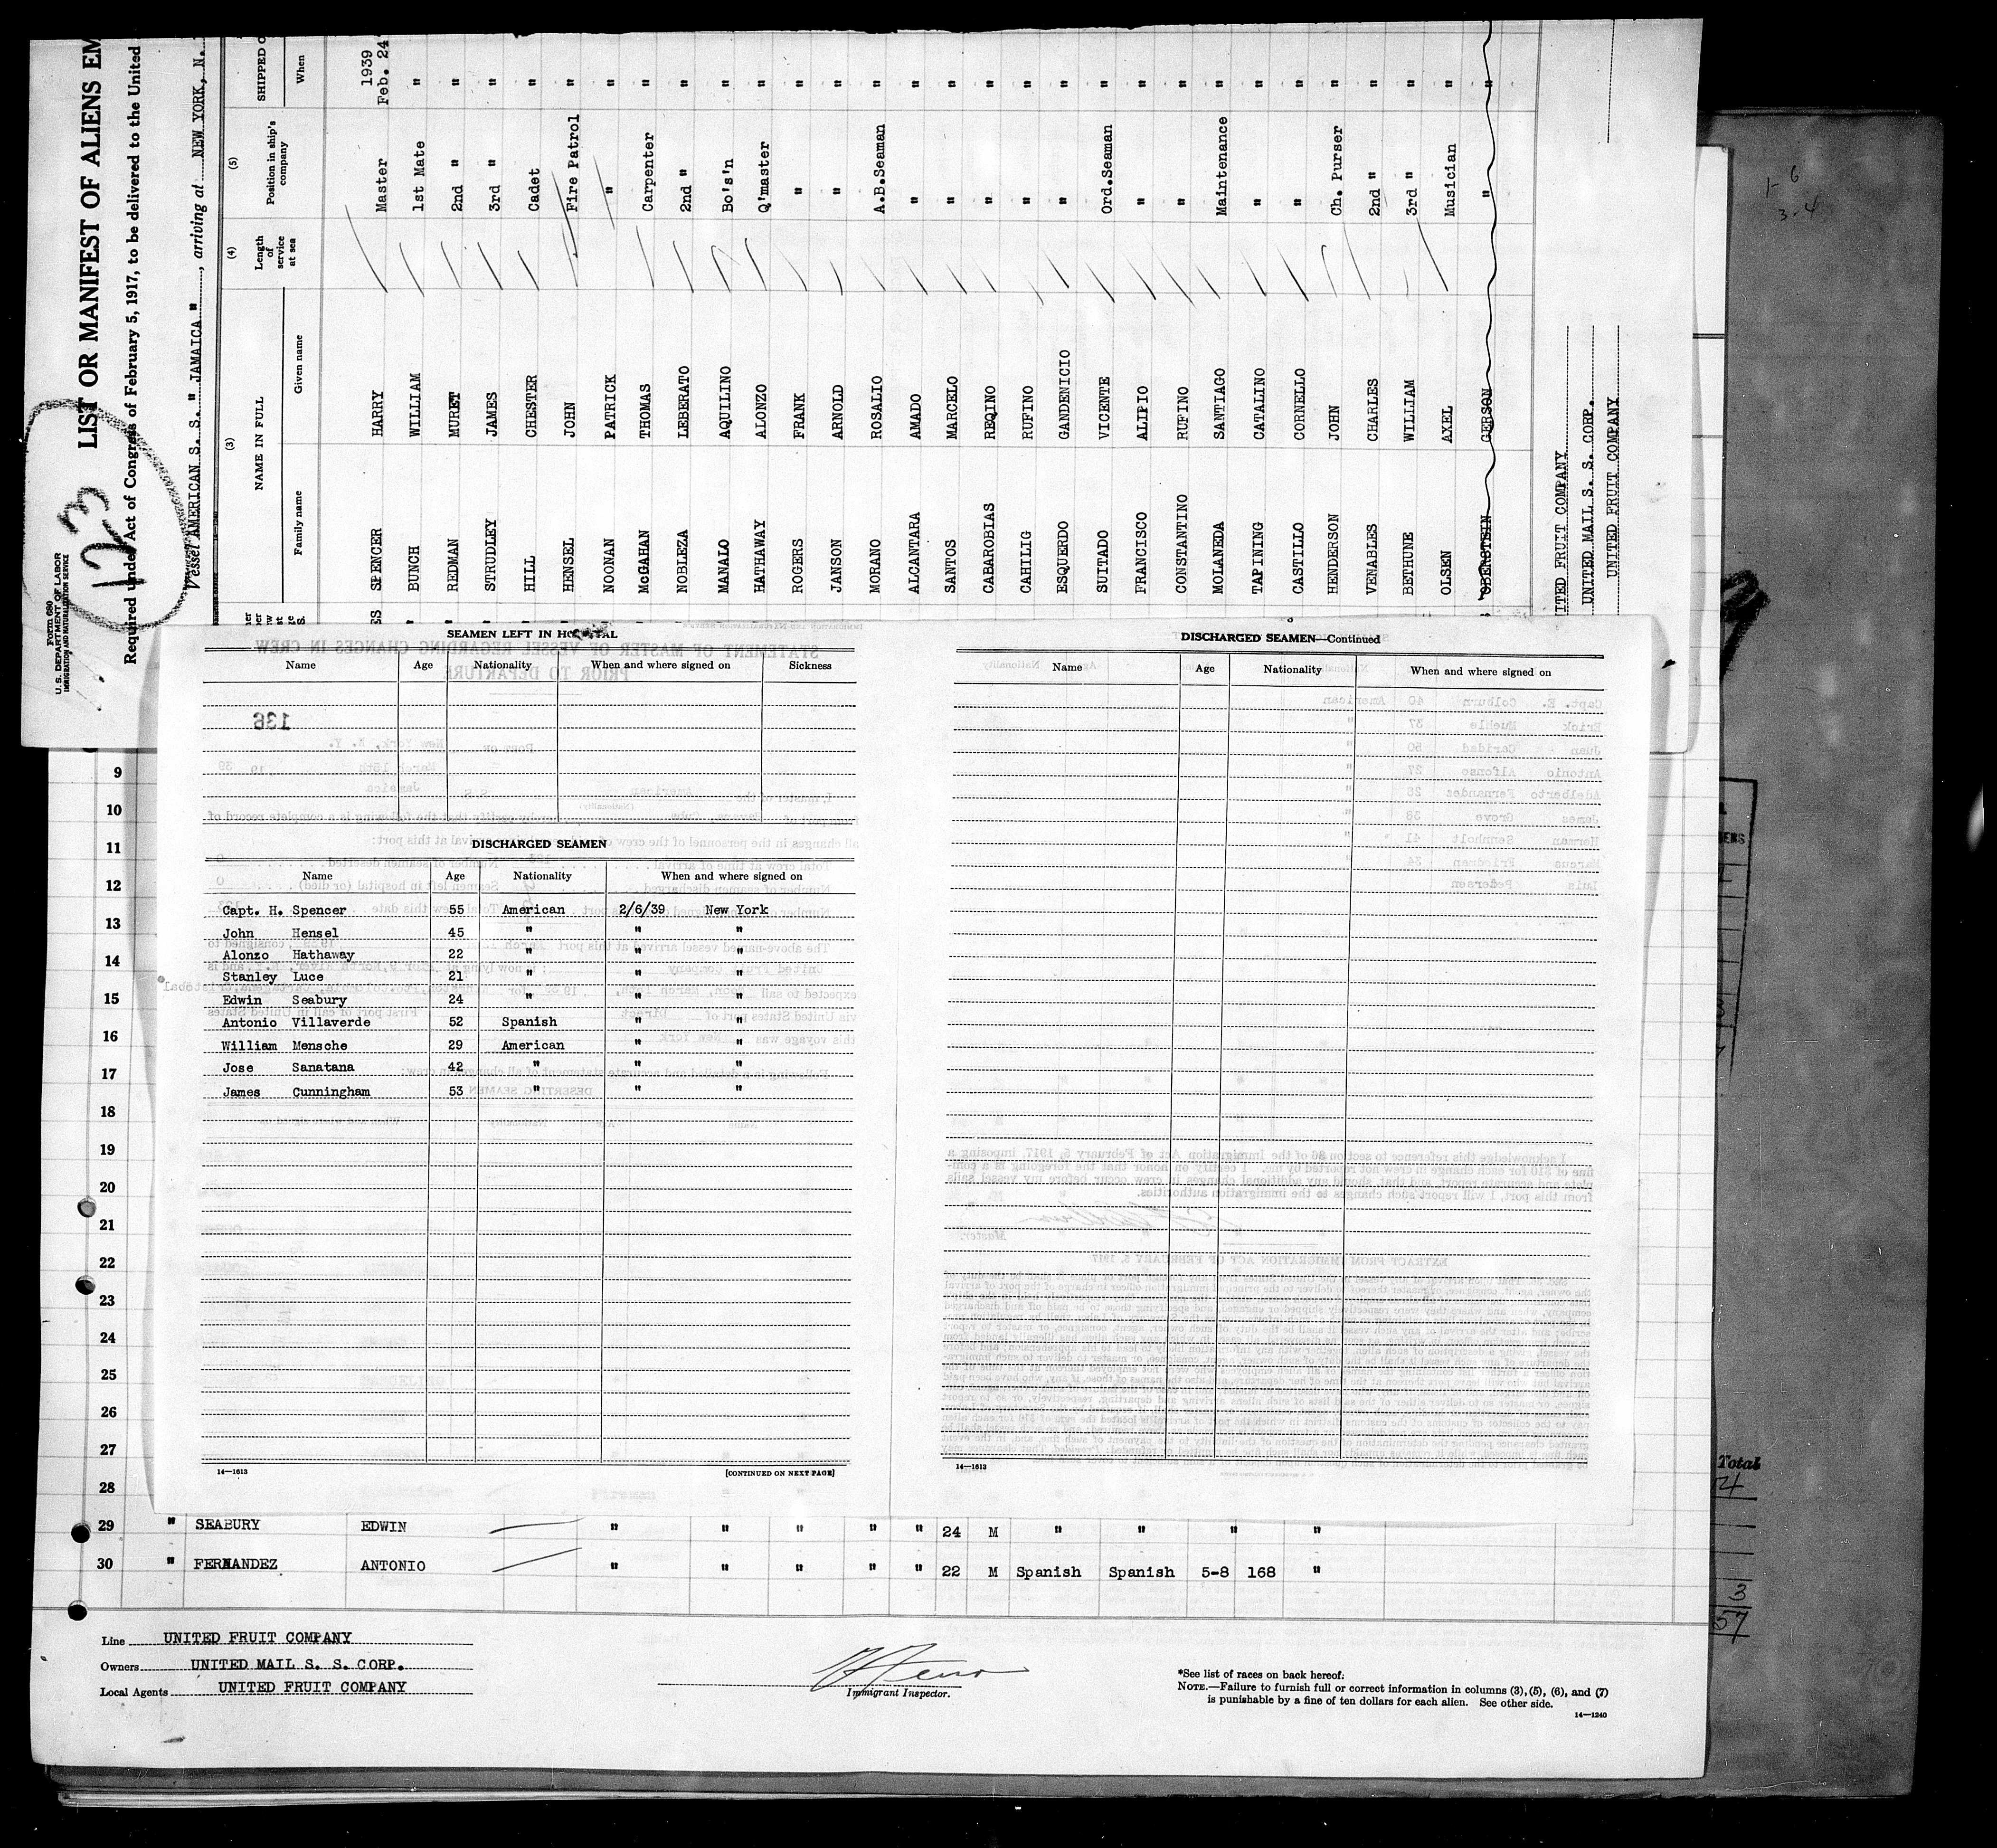 Form 680
U. S. DEPARTMENT OF LABOR
IMMIGRATION AND NATURALIZATION SERVICE
123
LIST OR MANIFEST OF ALIENS EM
Required under Act of Congress of February 5, 1917, to be delivered to the United
Vessel AMERICAN S. S. " JAMAICA ", arriving at NEW YORK, N.
(3) (4) (5)
NAME IN FULL Length of service at sea Position in ship's company SHIPPED O
Family name Given name When
1939
SPENCER HARRY Master Feb. 24
" BUNCH WILLIAM 1st Mate "
" REDMAN MURET 2nd " "
" STRUDLEY JAMES 3rd " "
" HILL CHESTER Cadet "
" HENSEL JOHN Fire Patrol "
NOONAN PATRICK " "
McGAHAN THOMAS Carpenter "
NOBLEZA LEBERATO 2nd " "
MANALO AQUILINO Bo's'n "
HATHAWAY ALONZO Q'master "
ROGERS FRANK " "
JANSON ARNOLD " "
MORANO ROSALIO A.B.Seaman "
ALCANTARA AMADO " "
SANTOS MARCELO " "
CABAROBIAS REQINO " "
CAHILIG RUFINO " "
ESQUERDO GANDENICIO " "
SUITADO VICENTE Ord.Seaman "
FRANCISCO ALIPIO " "
CONSTANTINO RUFINO " "
MOLANEDA SANTIAGO Maintenance "
TAPINING CATALINO " "
CASTILLO CORNELLO " "
HENDERSON JOHN Ch. Purser "
VENABLES CHARLES 2nd " "
BETHUNE WILLIAM 3rd " "
OLSEN AXEL Musician "
OBERSTEIN GERSON " "
ITED FRUIT COMPANY
UNITED MAIL S. S. CORP.
UNITED FRUIT COMPANY
SEAMEN LEFT IN HOSPITAL
Name Age Nationality When and where signed on Sickness
136
DISCHARGED SEAMEN
Name Age Nationality When and where signed on
Capt. H. Spencer 55 American 2/6/39 New York
John Hensel 45 " " "
Alonzo Hathaway 22 " " "
Stanley Luce 21 " " "
Edwin Seabury 24 " " "
Antonio Villaverde 52 Spanish " "
William Mensche 29 American " "
Jose Sanatana 42 " " "
James Cunningham 53 " " "
14—1613 [CONTINUED ON NEXT PAGE]
DISCHARGED SEAMEN—Continued
Name Age Nationality When and where signed on
14—1613
9
10
11
12
13
14
15
16
17
18
19
20
21
22
23
24
25
26
27
28
29 " SEABURY EDWIN " " " " " 24 M " " " "
30 " FERNANDEZ ANTONIO " " " " " 22 M Spanish Spanish 5-8 168 "
Line UNITED FRUIT COMPANY
Owners UNITED MAIL S. S. CORP.
Local Agents UNITED FRUIT COMPANY
Immigrant Inspector.
*See list of races on back hereof.
NOTE.—Failure to furnish full or correct information in columns (3), (5), (6), and (7)
is punishable by a fine of ten dollars for each alien. See other side.
14—1240
1- 6
3-4
Total
74
3
57